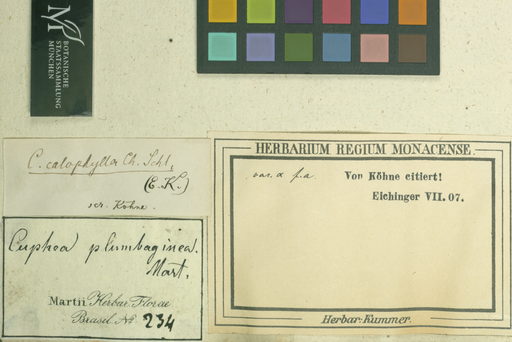 BOTANISCHE
STAATSSAMMLUNG
MÜNCHEN
C. calophylla Ch. Schl.
(E. K.)
scr. Köhne.
Cuphea plumbaginea.
Mart.
Martii Herbar. Florae
Brasil. No 234
HERBARIUM REGIUM MONACENSE.
var. α f. a
Von Köhne citiert!
Eichinger VII. 07.
Herbar. Kummer.